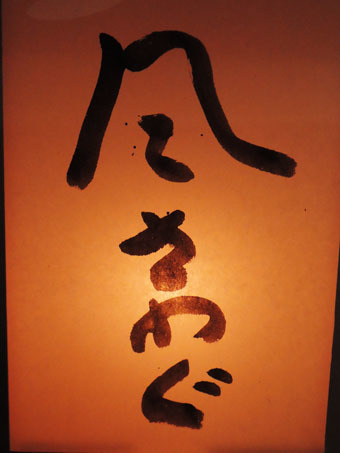 風さわぐ